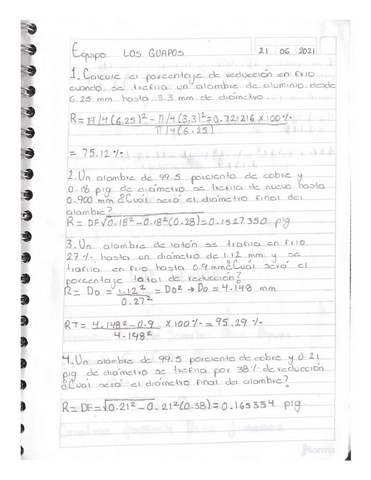 Equipo LOS GUAPOS 21 06 2021
1. Calcule el porcentaje de reducción en frio
cuando se trefila un alambre de aluminio desde
6.25 mm hasta 3.3 mm de diámetro.
R= π/4(6.25)² - π/4(3.3)² = 0.721216 x 100%
π/4(6.25)
= 75.12 %
2. Un alambre de 99.5 porciento de cobre y
0.18 plg de diámetro se trefila de nuevo hasta
0.900 mm ¿Cuál será el diámetro final del
alambre?
R= DF√0.18² - 0.18²(0.28) = 0.1527350 plg
3. Un alambre de latón se trafila en frio
27% hasta un diámetro de 1.12 mm y se
trafila en frio hasta 0.9 mm ¿Cuál será el
porcentaje total de reducción?
R= Do = 1.12² = Do² → Do = 4.148 mm
0.27²
RT= 4.148² - 0.9 x 100% = 95.29 %
4.148²
4. Un alambre de 99.5 porciento de cobre y 0.21
plg de diámetro se trefila por 38% de reducción
¿Cuál será el diámetro final de alambre?
R= DF= √0.21² - 0.21²(0.38) = 0.165354 plg
Norma